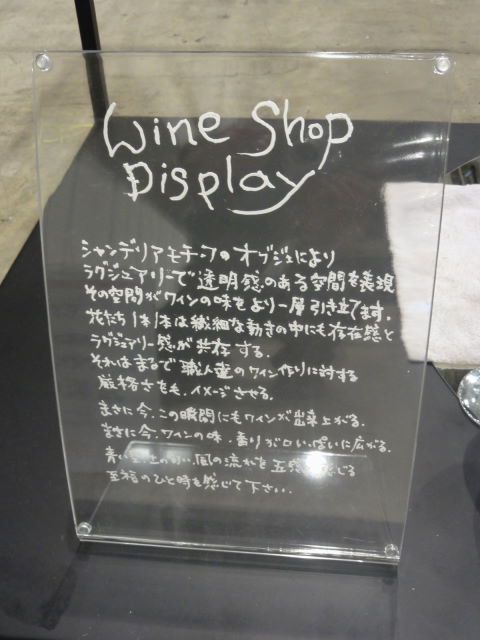 Wine Shop
Display
シャンデリアモチーフのオブジェにより
ラグジュアリーで透明感のある空間を表現
その空間がワインの味をより一層引き立てます。
花たち1本1本は繊細な動きの中にも存在感と
ラグジュアリー感が共存する。
それはまるで職人達のワイン作りに対する
厳格さをも、イメージさせる。
まさに今、この瞬間にもワインが出来上がる。
まさに今、ワインの味、香りが口いっぱいに広がる。
青い 風の流れを五感で感じる
至福のひと時を感じて下さい。